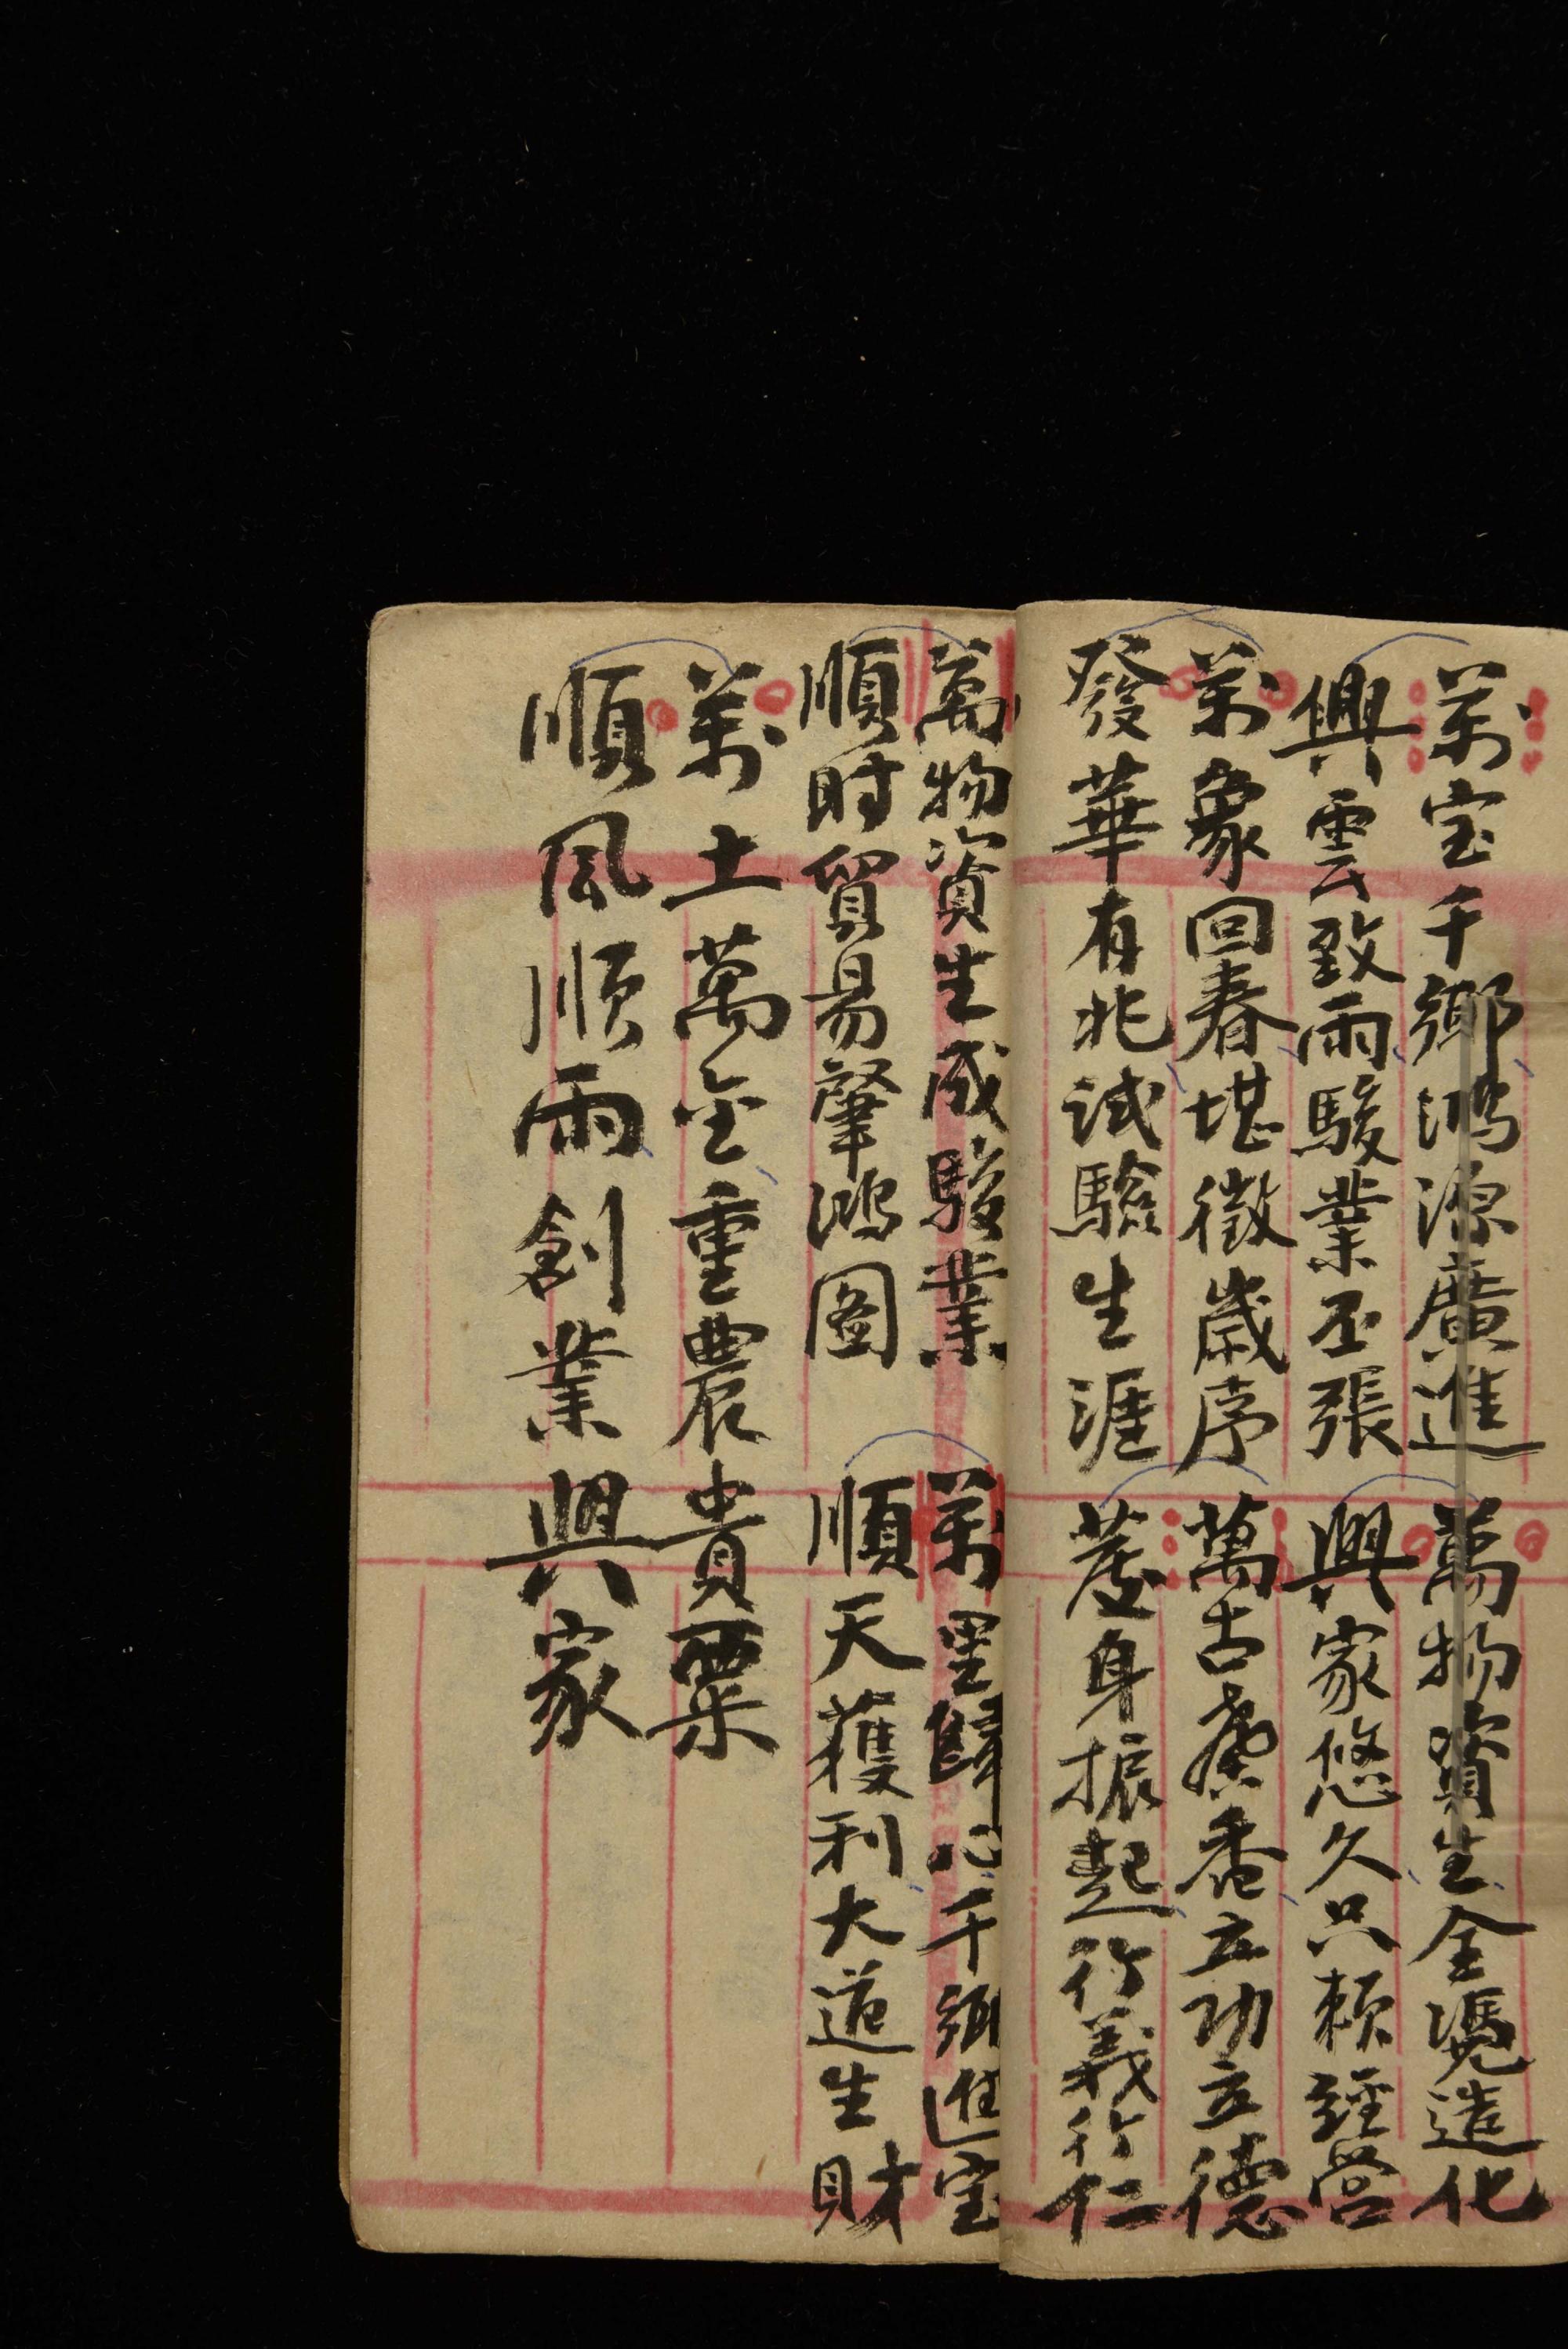 萬宝千鄉鴻源廣進
興雲致雨駿業丕張
萬物資生全凴造化
興家悠久只賴經营
萬象回春堪徵歲序
發華有兆試驗生涯
萬古立功立德
發身振起行義行仁
萬物資生成駿業
順时貿易肇鴻图
萬里歸心千鄉進宝
順天獲利大道生財
萬土萬金重農貴粟
順風順雨創業興家